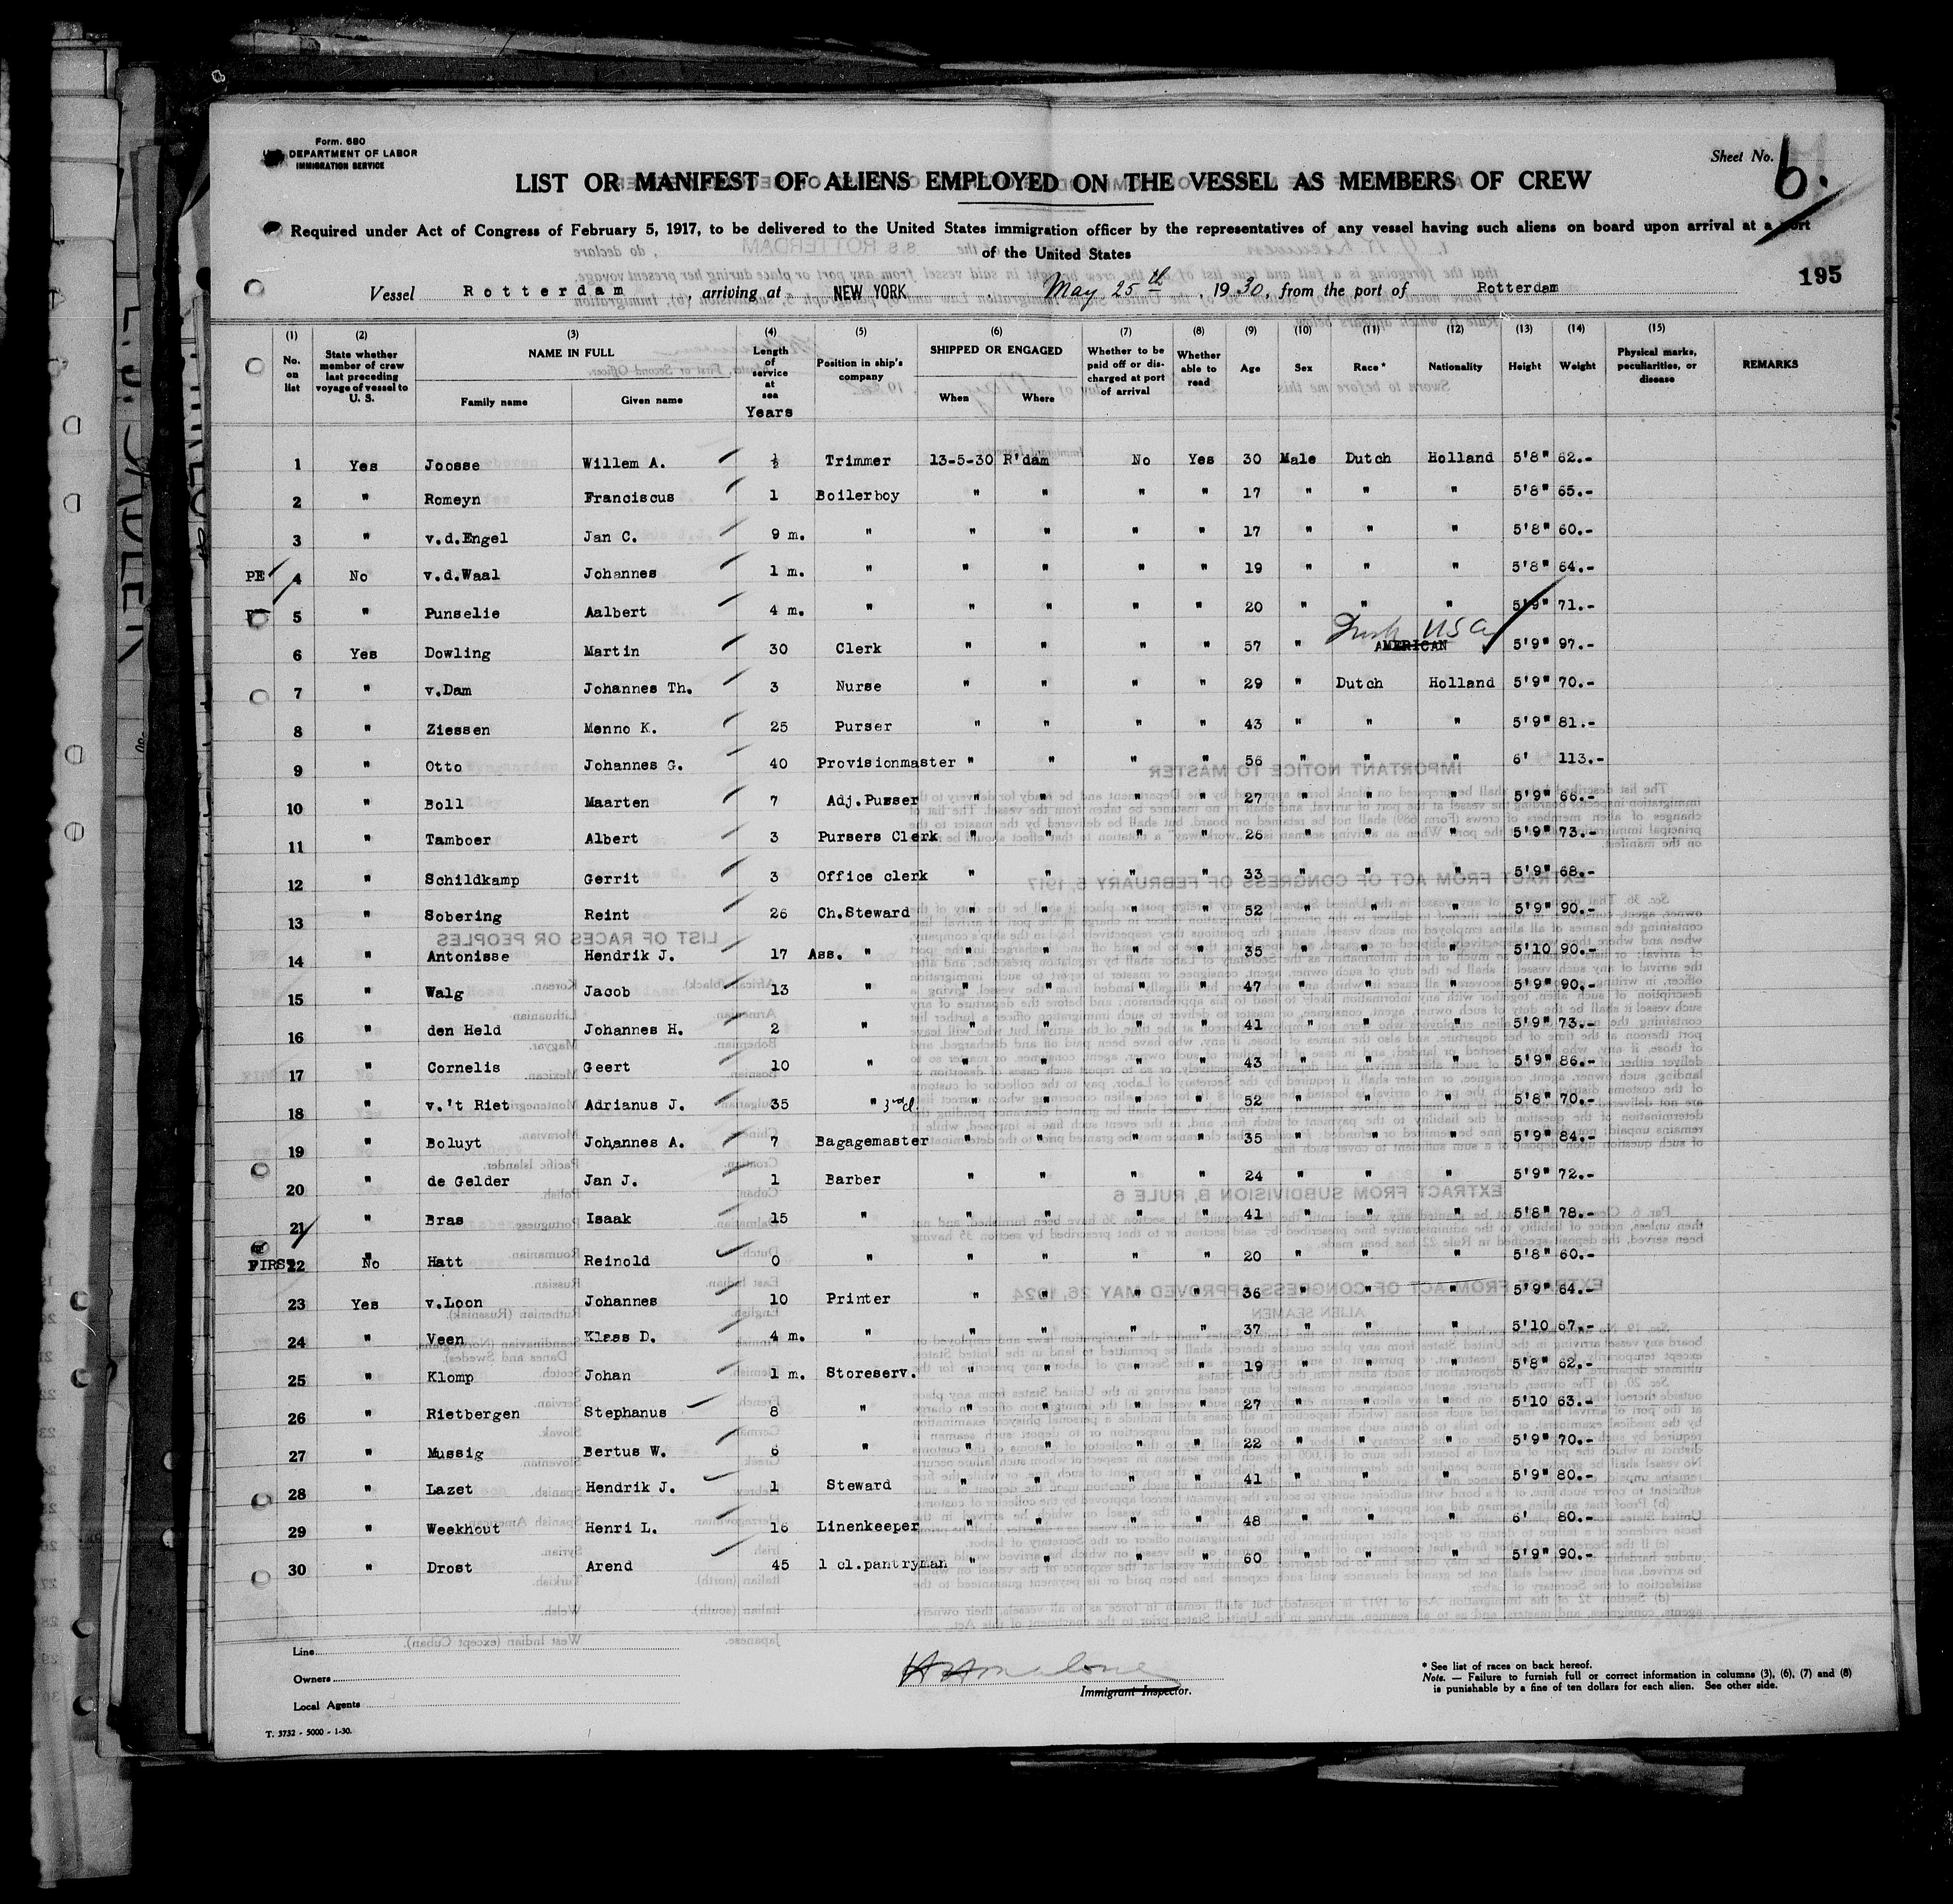 Form. 680
DEPARTMENT OF LABOR
IMMIGRATION SERVICE
Sheet No. 6.
LIST OR MANIFEST OF ALIENS EMPLOYED ON THE VESSEL AS MEMBERS OF CREW
Required under Act of Congress of February 5, 1917, to be delivered to the United States immigration officer by the representatives of any vessel having such aliens on board upon arrival at a port
of the United States
195
Vessel Rotterdam, arriving at NEW YORK May 25th, 1930, from the port of Rotterdam
(1) (2) (3) (4) (5) (6) (7) (8) (9) (10) (11) (12) (13) (14) (15)
No. on list State whether member of crew last preceding voyage of vessel to U. S. NAME IN FULL Family name Given name Length of service at sea Years Position in ship's company SHIPPED OR ENGAGED When Where Whether to be paid off or discharged at port of arrival Whether able to read Age Sex Race* Nationality Height Weight Physical marks, peculiarities, or disease REMARKS
1 Yes Joosse Willem A. ½ Trimmer 13-5-30 R'dam No Yes 30 Male Dutch Holland 5'8" 62.-
2 " Romeyn Franciscus 1 Boilerboy " " " " 17 " " " 5'8" 65.-
3 " v.d.Engel Jan C. 9 m. " " " " " 17 " " " 5'8" 60.-
PE 4 No v.d.Waal Johannes 1 m. " " " " " 19 " " " 5'8" 64.-
5 " Punselie Aalbert 4 m. " " " " " 20 " " " 5'9" 71.-
6 Yes Dowling Martin 30 Clerk " " " " 57 " Irish USA AMERICAN 5'9" 97.-
7 " v.Dam Johannes Th. 3 Nurse " " " " 29 " Dutch Holland 5'9" 70.-
8 " Ziessen Menno K. 25 Purser " " " " 43 " " " 5'9" 81.-
9 " Otto Johannes G. 40 Provisionmaster " " " " 56 " " " 6' 113.-
10 " Boll Maarten 7 Adj.Purser " " " " 27 " " " 5'9" 66.-
11 " Tamboer Albert 3 Pursers Clerk " " " " 26 " " " 5'9" 73.-
12 " Schildkamp Gerrit 3 Office clerk " " " " 33 " " " 5'9" 68.-
13 " Sobering Reint 26 Ch.Steward " " " " 52 " " " 5'9" 90.-
14 " Antonisse Hendrik J. 17 Ass. " " " " " 35 " " " 5'10 90.-
15 " Walg Jacob 13 " " " " " 47 " " " 5'9" 90.-
16 " den Held Johannes H. 2 " " " " " 41 " " " 5'9" 73.-
17 " Cornelis Geert 10 " " " " " 43 " " " 5'9" 86.-
18 " v.'t Riet Adrianus J. 35 " 3rd cl. " " " " 52 " " " 5'8" 70.-
19 " Boluyt Johannes A. 7 Bagagemaster " " " " 35 " " " 5'9" 84.-
20 " de Gelder Jan J. 1 Barber " " " " 24 " " " 5'9" 72.-
21 " Bras Isaak 15 " " " " " 41 " " " 5'8" 78.-
FIRST 22 No Hatt Reinold 0 " " " " " 20 " " " 5'8" 60.-
23 Yes v.Loon Johannes 10 Printer " " " " 36 " " " 5'9" 64.-
24 " Veen Klaas D. 4 m. " " " " " 37 " " " 5'10 67.-
25 " Klomp Johan 1 m. Storeserv. " " " " 19 " " " 5'8" 62.-
26 " Rietbergen Stephanus 8 " " " " " 27 " " " 5'10 63.-
27 " Mussig Bertus W. 6 " " " " " 22 " " " 5'9" 70.-
28 " Lazet Hendrik J. 1 Steward " " " " 41 " " " 5'9" 80.-
29 " Weekhout Henri L. 16 Linenkeeper " " " " 48 " " " 6' 80.-
30 " Drost Arend 45 1 cl.pantryman " " " " 60 " " " 5'9" 90.-
Line
Owners
Local Agents
Immigrant Inspector.
* See list of races on back hereof.
Note. — Failure to furnish full or correct information in columns (3), (6), (7) and (8)
is punishable by a fine of ten dollars for each alien. See other side.
T. 3732 - 5000 - 1-30.